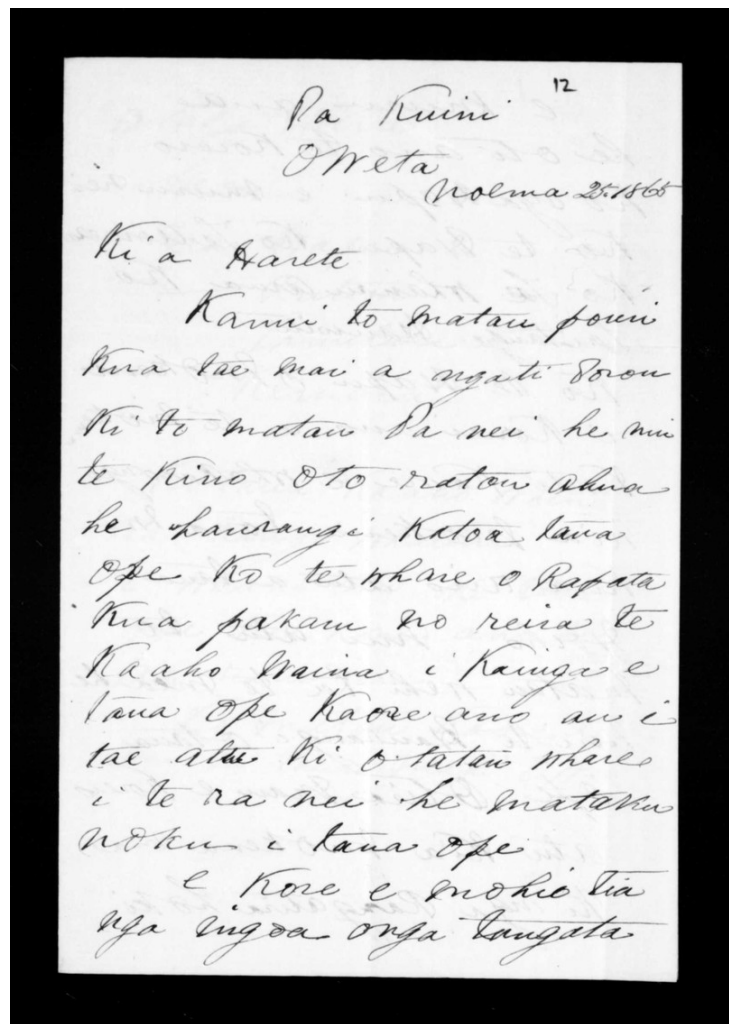 12
Pa Kuini
Oweta
Noema 25. 1865
Ki a Harete
Kanui to matau pouri
Kua tae mai a ngati Porou
Ki to matau Pa nei he nui
te Kino Oto ratou ahua
he haurangi Katoa taua
Ope Ko te whare o Rapata
Kua pakaru no reira te
Kaaho Waina i Kainga e
taua Ope Kaore ano au i
tae atu Ki o tatau whare
i te ra nei he mataku
noku i taua Ope
e Kore e mohio tia
nga ingoa onga tangata